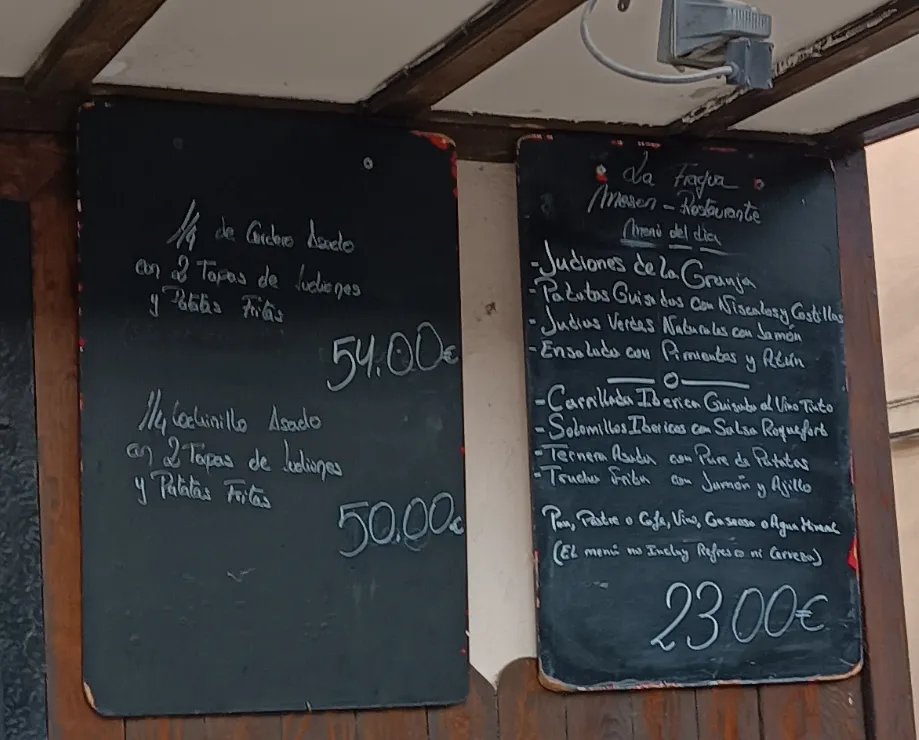 1/4 de Cordero Asado
con 2 Tapas de Judiones
y Patatas Fritas
54.00€
1/4 Cochinillo Asado
con 2 Tapas de Judiones
y Patatas Fritas
50.00€
La Fragua
Meson - Restaurante
Menú del dia
- Judiones de La Granja
- Patatas Guisadas con Niscalos y Costillas
- Judias Verdes Naturales con Jamón
- Ensalada con Pimientos y Atún
- Carrillada Iberica Guisada al Vino Tinto
- Solomillos Ibericos con Salsa Roquefort
- Ternera Asada con Pure de Patatas
- Trucha Frita con Jamón y Ajillo
Pan, Postre o Cafe, Vino, Gaseosa o Agua Mineral
(EL menú no Incluy Refresco ni Cerveza)
23 00€